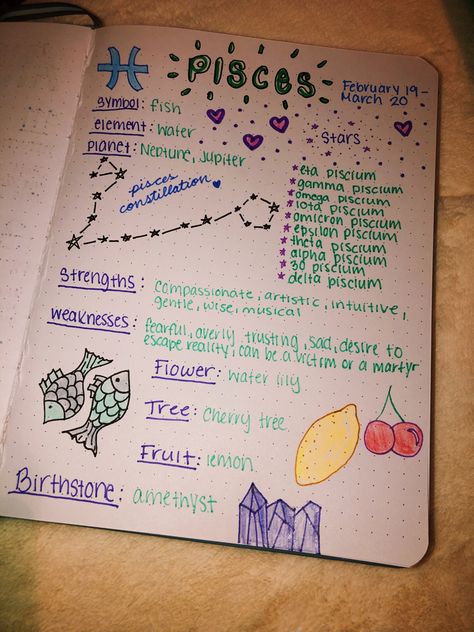 PISCES
February 19 -
March 20
symbol: fish
element: water
planet: Neptune, Jupiter
pisces
constillation
stars
eta piscium
gamma piscium
omega piscium
iota piscium
omicron piscium
epsilon piscium
theta piscium
alpha piscium
30 piscium
delta piscium
Strengths: compassionate, artistic, intuitive,
gentle, wise, musical
weaknesses: fearful, overly trusting, sad, desire to
escape reality, can be a victim or a martyr
Flower: water lily
Tree: cherry tree
Fruit: lemon
Birthstone: amethyst